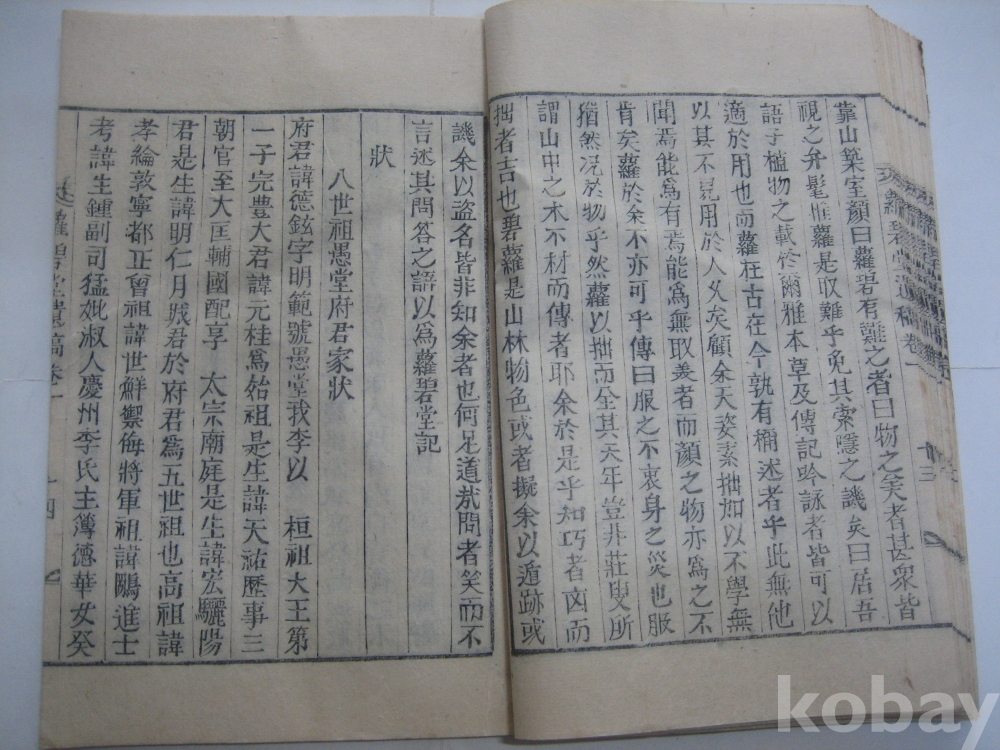 靠山築室顔曰蘿碧有難之者曰物之美者甚衆皆
視之弁髦惟蘿是取難乎免其索隱之譏矣曰居吾
語子植物之載於爾雅本草及傳記吟詠者皆可以
適於用也而蘿在古在今孰有稱述者乎此無他
以其不見用於人久矣顧余天姿素拙加以不學無
聞焉能爲有焉能爲無取美者而顔之物亦爲之不
肯矣蘿於余不亦可乎傳曰服之不衷身之災也服
猶然况於物乎然蘿以拙而全其天年豈非莊叟所
謂山中之木不材而傳者耶余於是乎知巧者凶而
拙者吉也碧蘿是山林物色或者擬余以遁跡或
蘿碧堂遺稿卷一
十三
譏余以盜名皆非知余者也何足道哉問者笑而不
言述其問答之語以爲蘿碧堂記
狀
八世祖愚堂府君家狀
府君諱德鉉字明範號愚堂我李以 桓祖大王第
一子完豊大君諱元桂爲始祖是生諱天祐歷事三
朝官至大匡輔國配享 太宗廟庭是生諱宏驪陽
君是生諱明仁月城君於府君爲五世祖也高祖諱
孝綸敦寧都正曾祖諱世鮮禦侮將軍祖諱鷗進士
考諱生鍾副司猛妣淑人慶州李氏主簿德華女癸
蘿碧堂遺稿卷一
十四
kobay